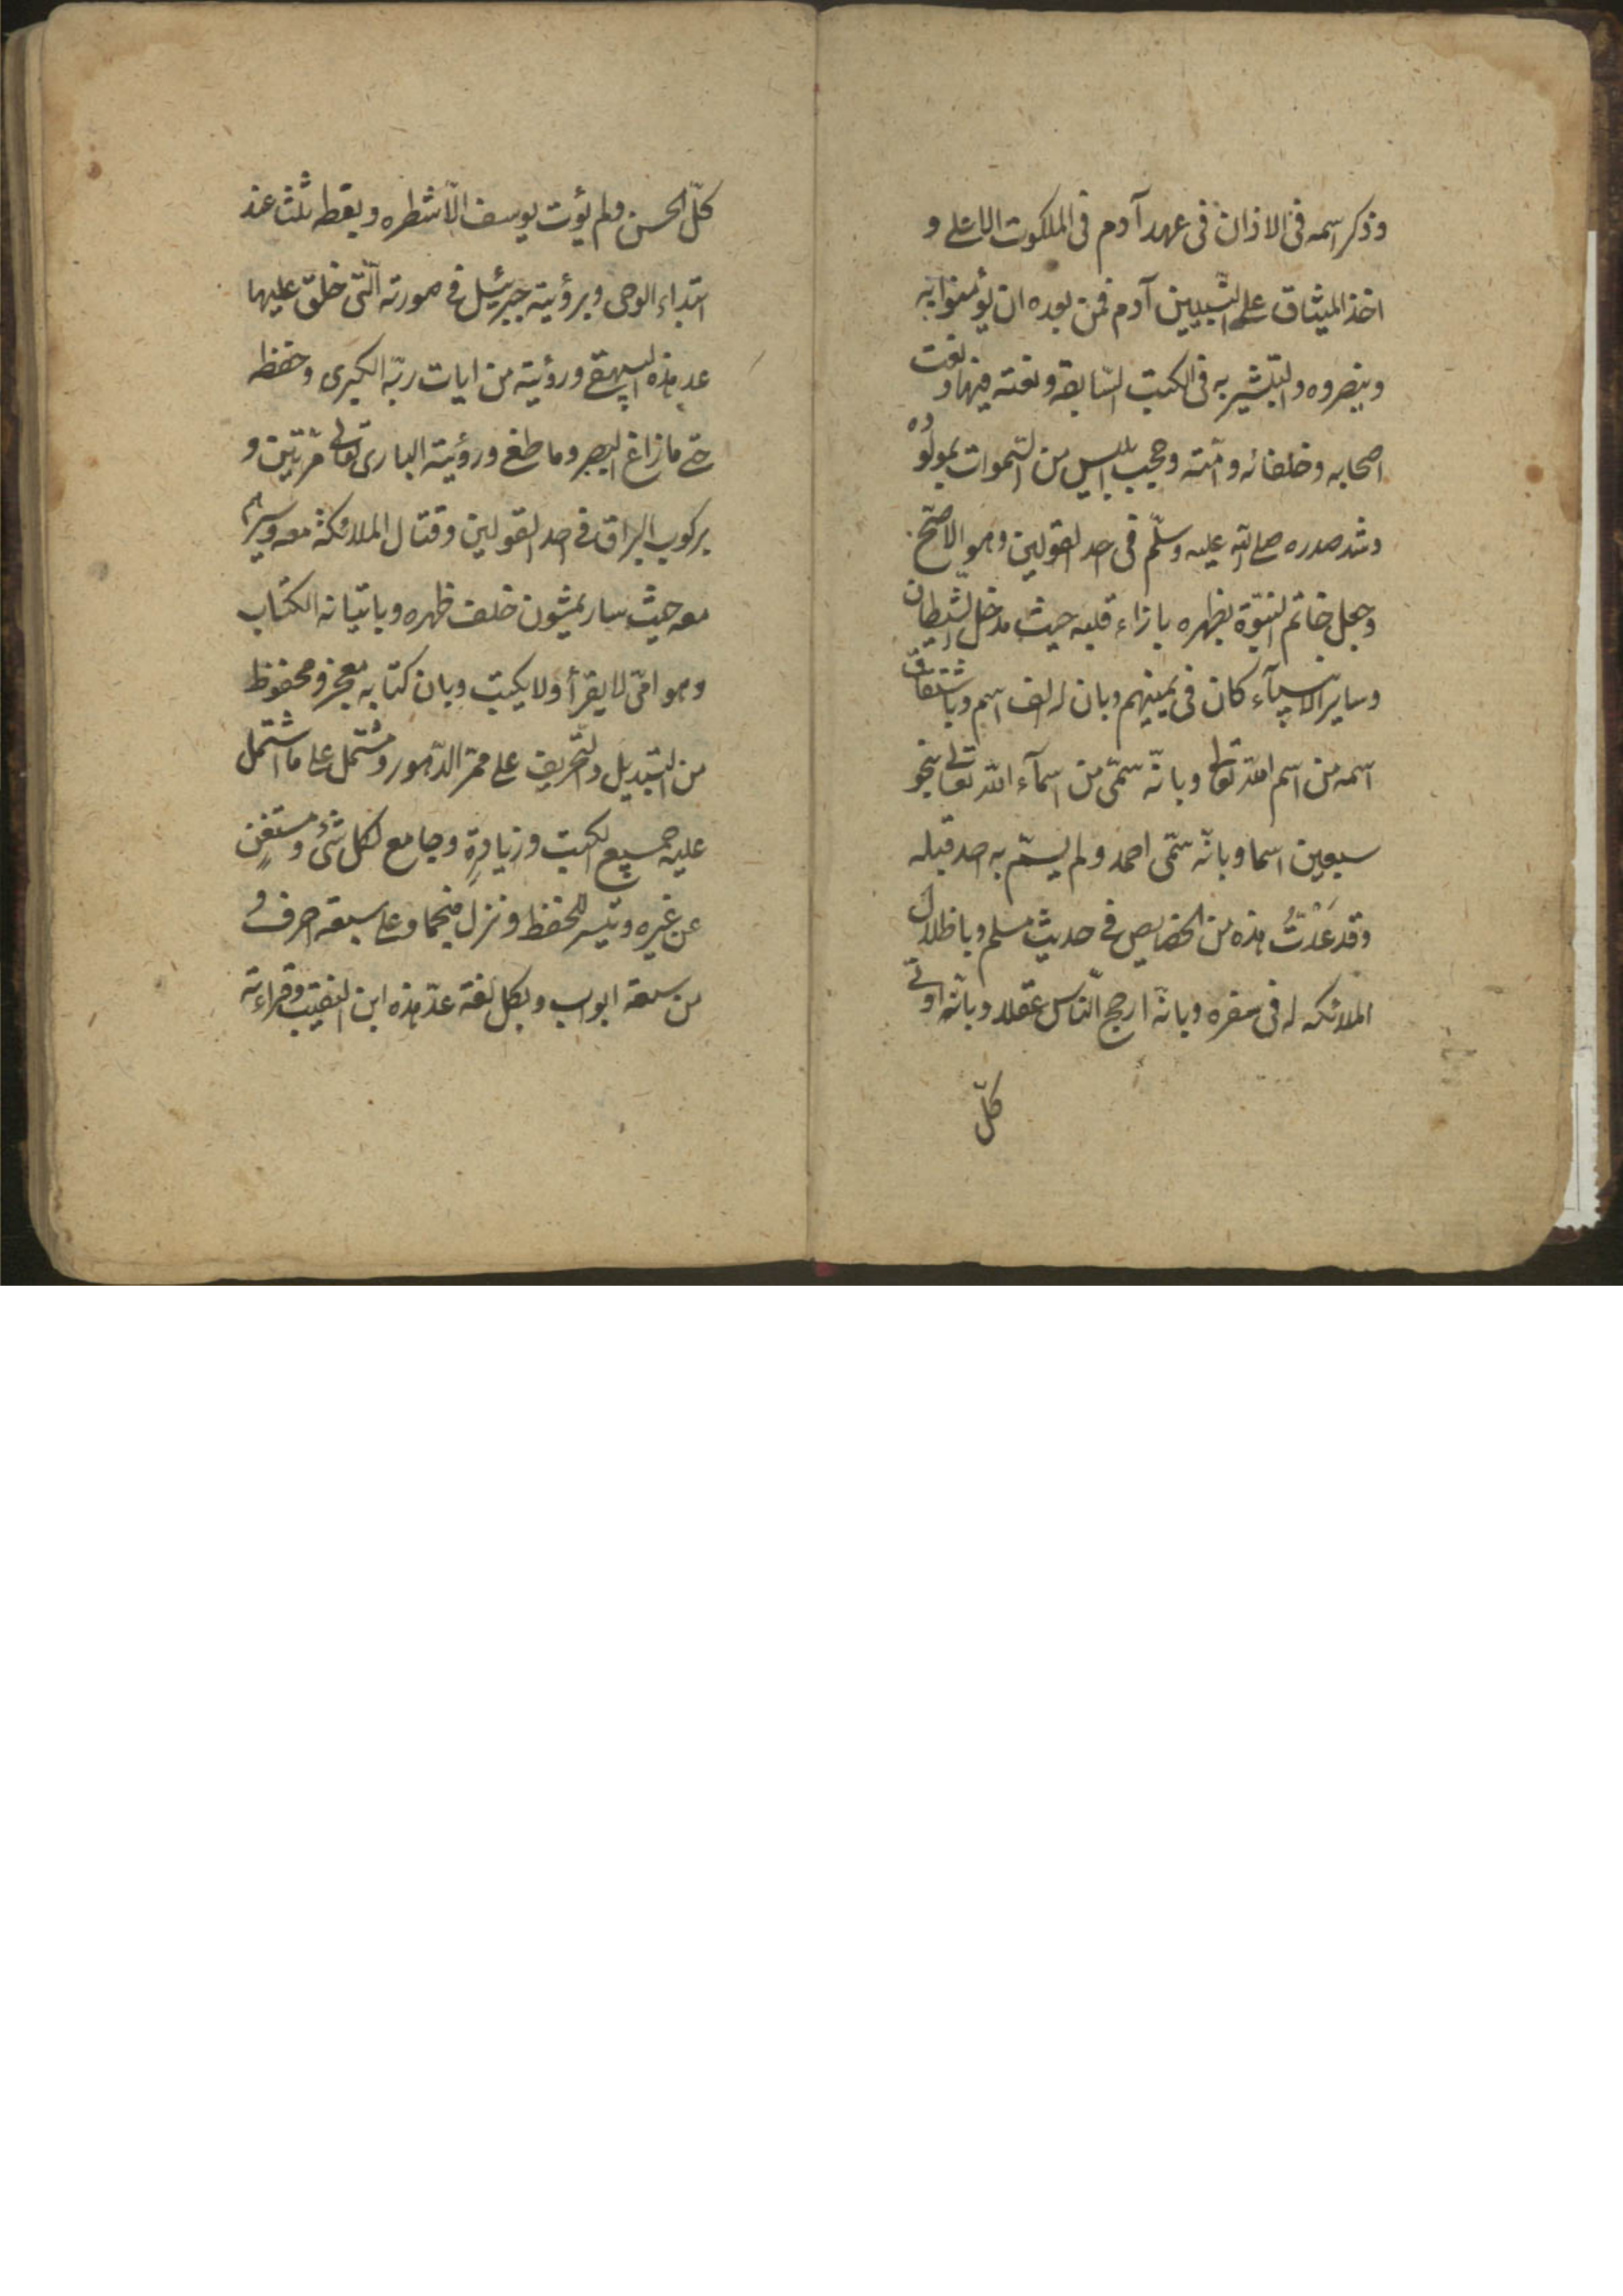 وذكر اسمه فى الاذان فى عهد آدم فى الملكوت الاعلى و
اخذ الميثاق على النّبيين آدم فمن بعده ان يؤمنوا به
وينصروه والتبشير به فى الكتب السّابقة ونعته فيها ونعت
اصحابه وخلفائه وامّته وحجب ابليس من السّموات لمولده
وشد صدره صلى اللّه عليه وسلّم فى احد القولين وهو الاصحّ
وجعل خاتم النبوّة بظهره بازاء قلبه حيث مدخل الشّيطان
وساير الانبيآء كان فى يمينهم وبان له الف اسم وباشتقاق
اسمه من اسم اللّه تعالى وبانّه سمّى من اسمآء اللّه تعالى بنحو
سبعين اسما وبانّه سمّى احمد ولم يسمّ به احد قبله
وقد عَدَدْتُ هذه من الخصايص فى حديث مسلم وباظلال
الملائكه له فى سفره وبانّه ارجح النّاس عقلا وبانّه اوتى
كلّ
كلّ الحسن ولم يؤت يوسف الّا شطره وبغطه ثلثا عند
ابتداء الوحى وبرؤيته جبرئيل فى صورته الّتى خلق عليها
عد هذه البيهقى ورؤيته من ايات ربّه الكبرى وحفظه
حتى ما زاغ البصر وما طغى ورؤيته البارى تعالى مرّتين و
بركوب البراق فى احد القولين وقتال الملائكة معه وسيرهم
معه حيث سار يمشون خلف ظهره وباتيانه الكتاب
وهو امّى لا يقرأ ولا يكتب وبان كتابه معجز ومحفوظ
من التبديل والتّحريف على ممرّ الدّهور ومشتمل على ما اشتمل
عليه جميع الكتب وزيادةٍ وجامع لكل شئ ومستغنٍ
عن غيره وتيسر للحفظ ونزل منجما وعلى سبعة احرف و
من سبعة ابواب وبكل لغة عدّ هذه ابن النقيب وقراءته